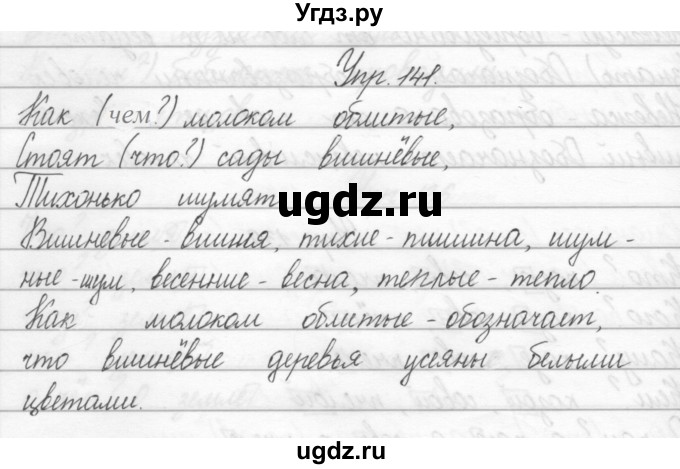 Угдз.ру
Упр. 141.
Как (чем?) молоком облитые,
Стоят (что?) сады вишнёвые,
Тихонько шумят
ugdz.ru
Вишневые - вишня, тихие - тишина, шум-
ные - шум, весенние - весна, теплые - тепло.
Как молоком облитые - обозначает,
что вишнёвые деревья усеяны белыми
цветами.
ugdz.ru